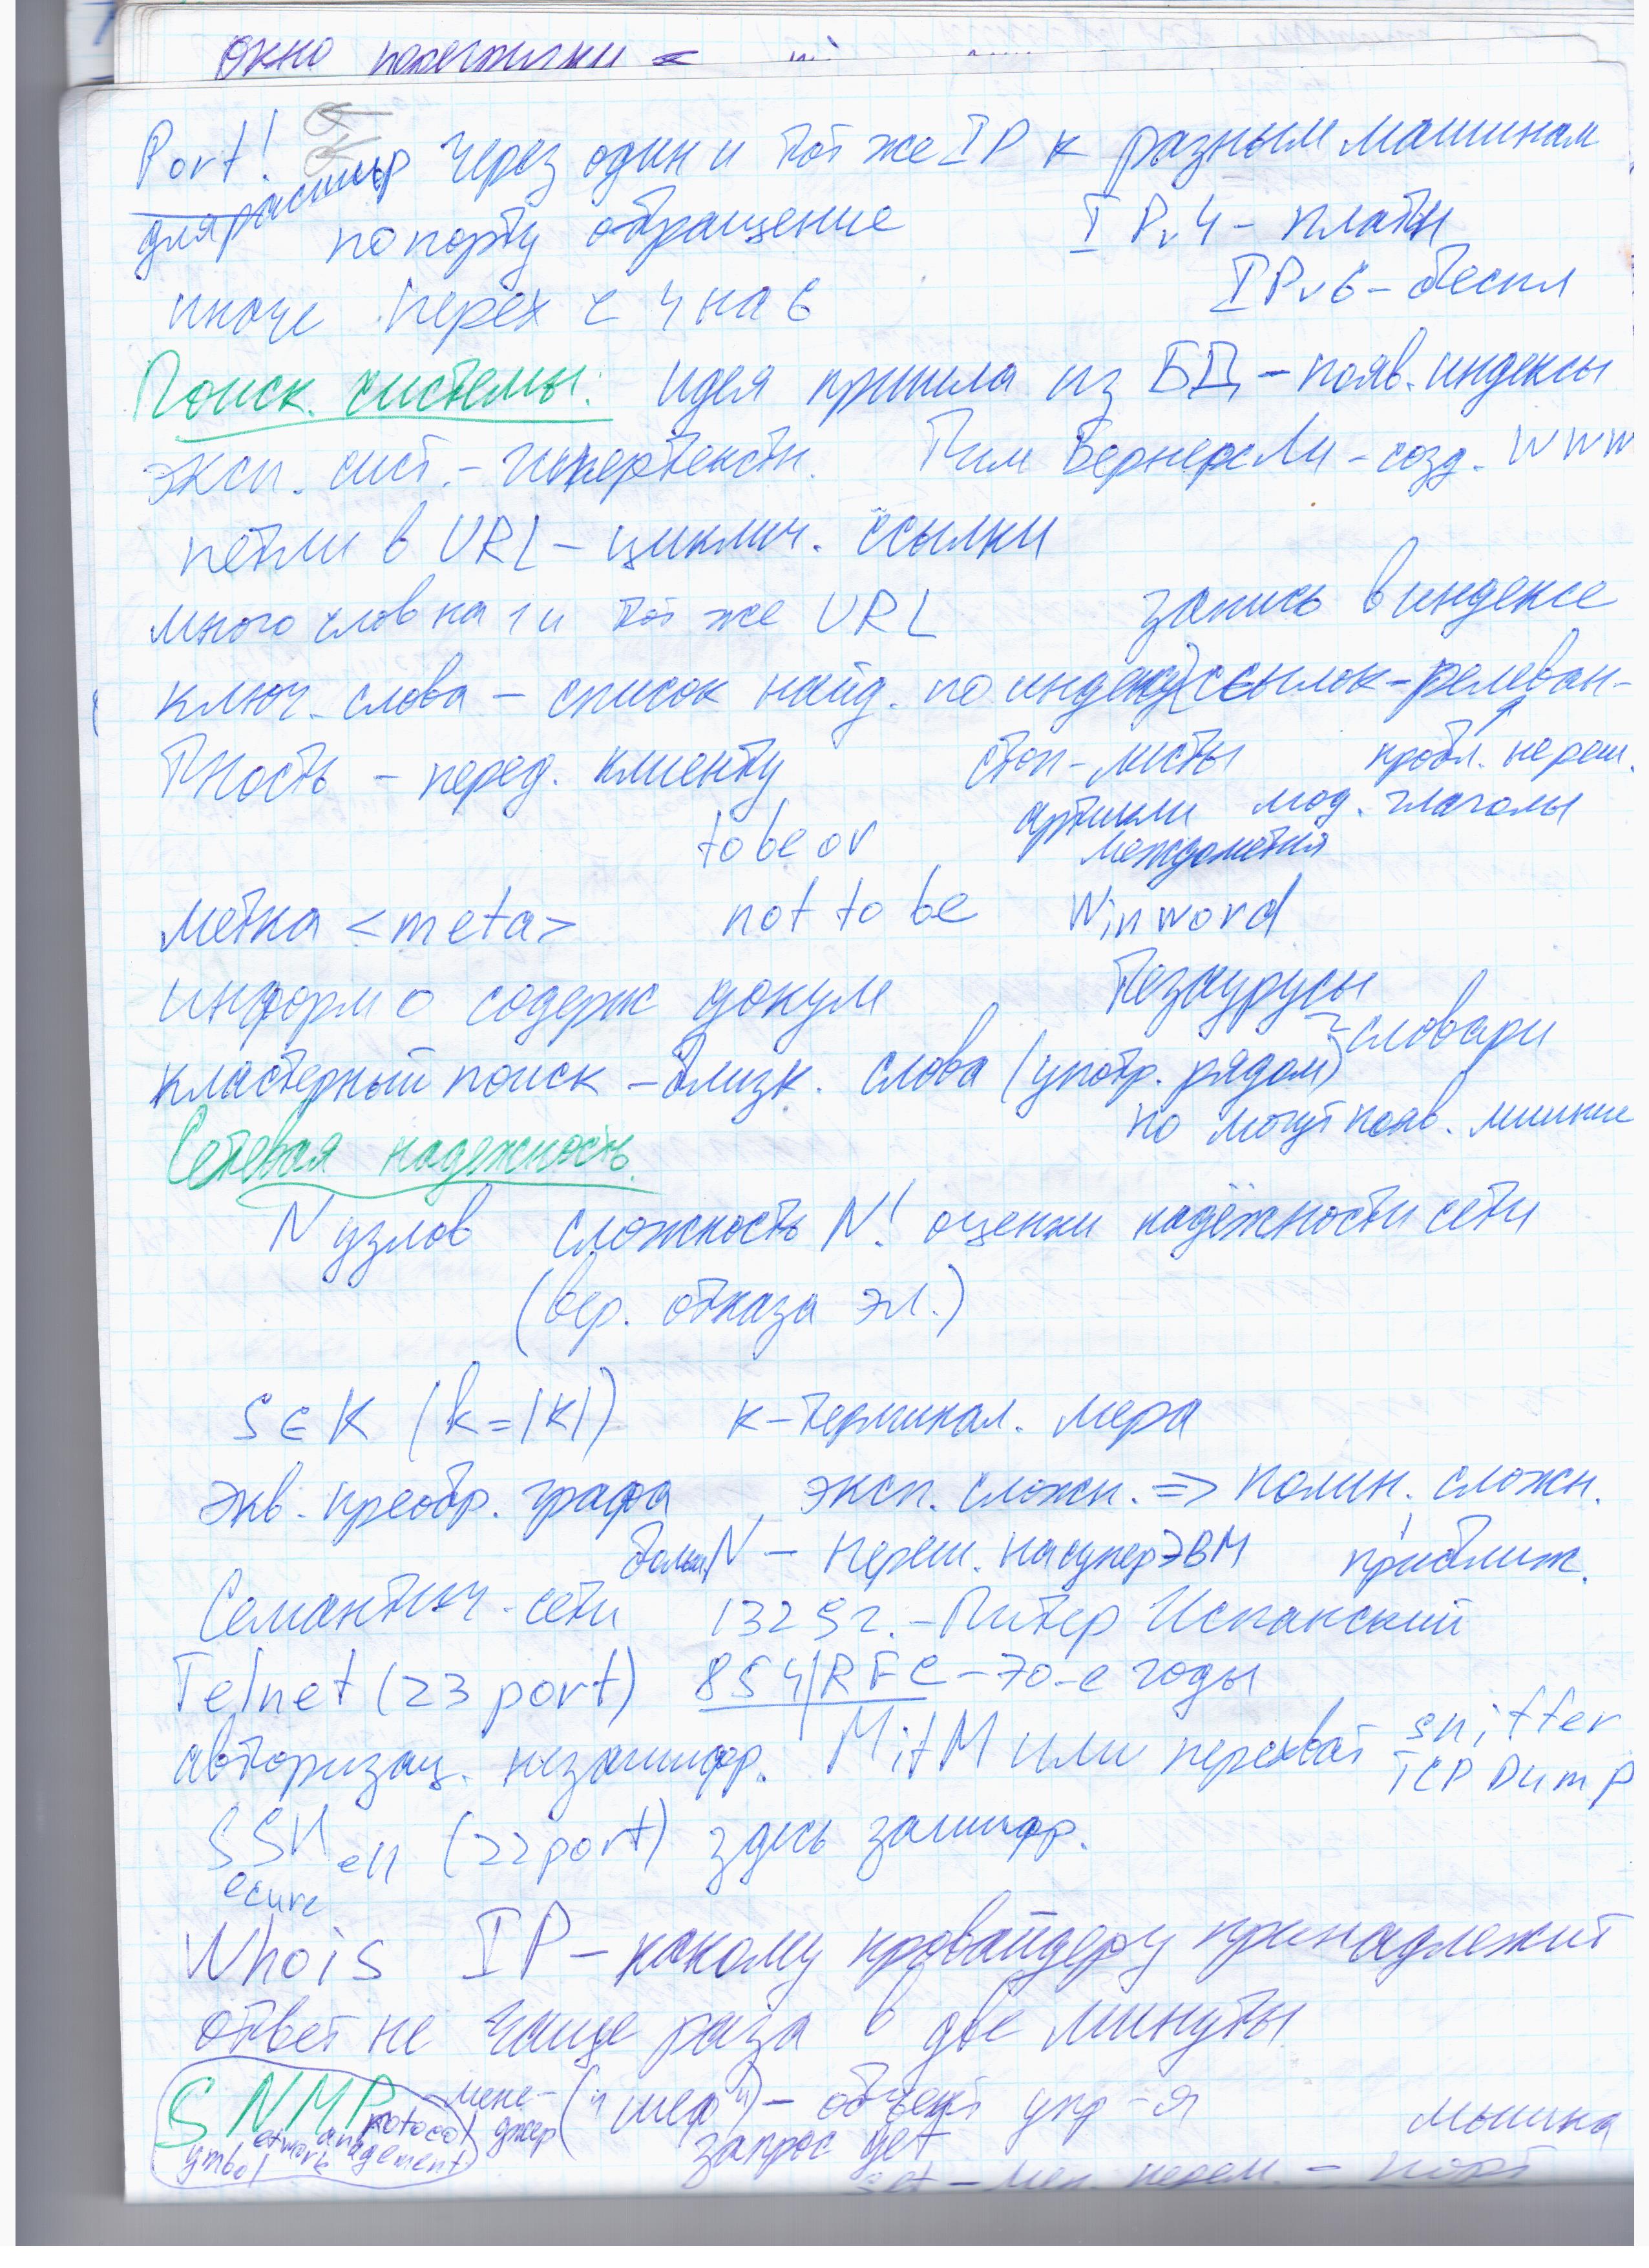 окно перегрузки =
Port! через один и тот же IP к разным машинам
для расшир по порту обращение IPv4 - платн
иначе перех с 4 на 6 IPv6 - беспл
Поиск. системы: идея пришла из БД - появ. индексы
эксп. сист. - гипертекстн. Тим Бернерс Ли - созд. WWW
петли в URL - циклич. ссылки
много слов на 1 и тот же URL запись в индексе
ключ. слова - список найд. по индексу ссылок - релеван-
тность - перед. клиенту стоп-листы пробл. нереш.
to be or артикли мод. глаголы
междометия
метка <meta> not to be Winword
информ о содерж докум Тезаурусы
словари
кластерный поиск - близк. слова (употр. рядом)
но могут появ. лишние
Сетевая надежность.
N узлов сложность N! оценки надёжности сети
(вер. отказа эл.)
S∈K (k=|K|) к-терминал. мера
экв. преобр. графа эксп. сложн. => полин. сложн.
больш. N - нереш. на суперЭВМ приближ.
Семантич. сети 1325г. - Питер Испанский
Telnet (23 port) 854|RFC - 70-е годы
авторизац. незашифр. MitM или перехват sniffer
TCP Dump
SSH ell (22 port) здесь зашифр.
ecure
Whois IP - какому провайдеру принадлежит
ответ не чаще раза в две минуты
SNMP мене- ("шеф") - объект упр-я
rotocol джер запрос get мышка
ymbol etwork anagement
set - порт